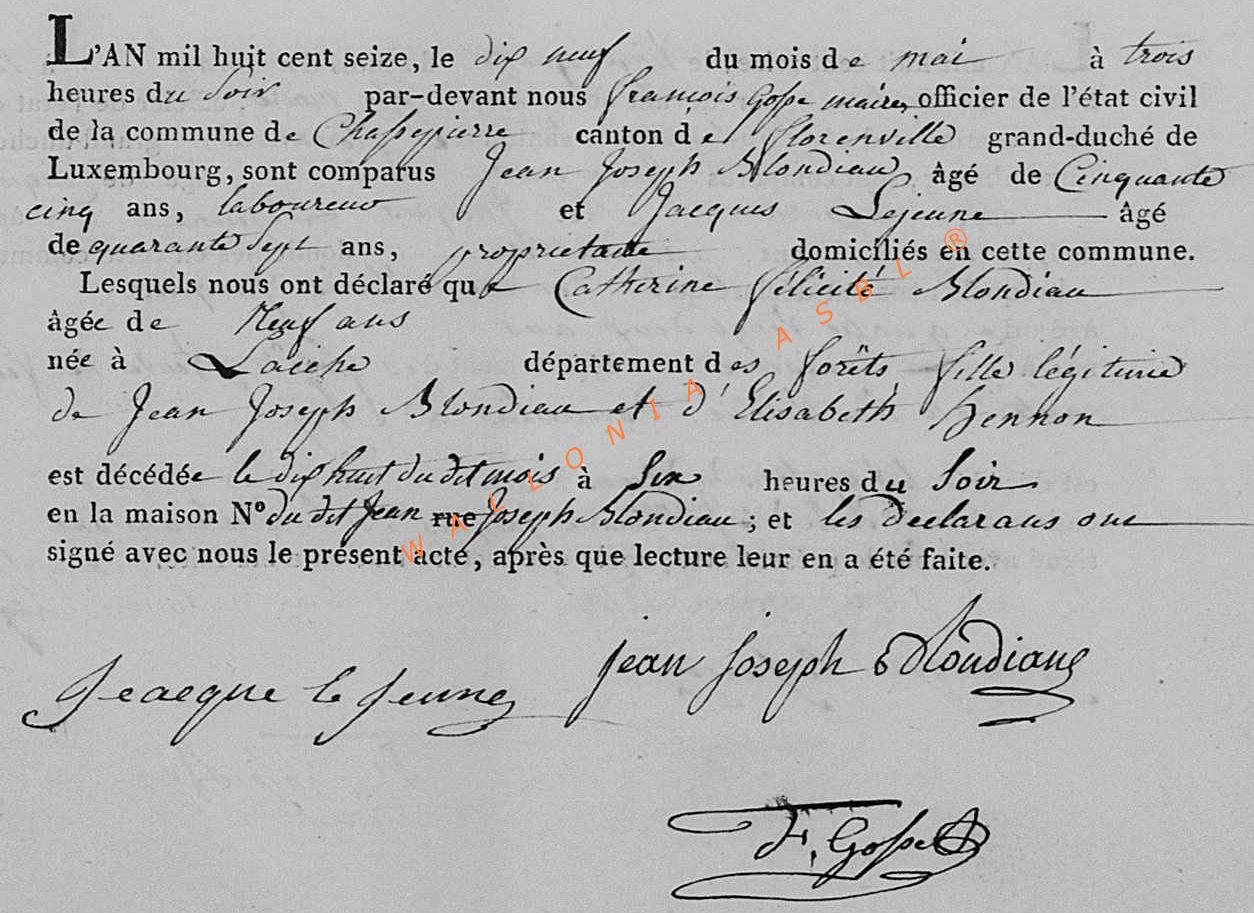 L'AN mil huit cent seize, le dix neuf du mois de mai à trois
heures du soir par-devant nous françois Gosse maire, officier de l'état civil
de la commune de Chassepierre canton de florenville grand-duché de
Luxembourg, sont comparus Jean Joseph Blondiau âgé de Cinquante
cinq ans, laboureur et Jacques Lejeune âgé
de quarante Sept ans, proprietaire domiciliés en cette commune.
Lesquels nous ont déclaré que Catherine félicité Blondiau
âgée de Neuf ans
née à Laiche département des forêts, fille légitime
de Jean Joseph Blondiau et d'Elisabeth Hennon
est décédée le dix huit du dit mois à Six heures du Soir
en la maison N° du dit Jean rue Joseph Blondiau ; et les declarans ont
signé avec nous le présent acte, après que lecture leur en a été faite.
WALLONIA ASBL ®
Jeacque le Jeune
jean joseph Blondiau
F. Gosse